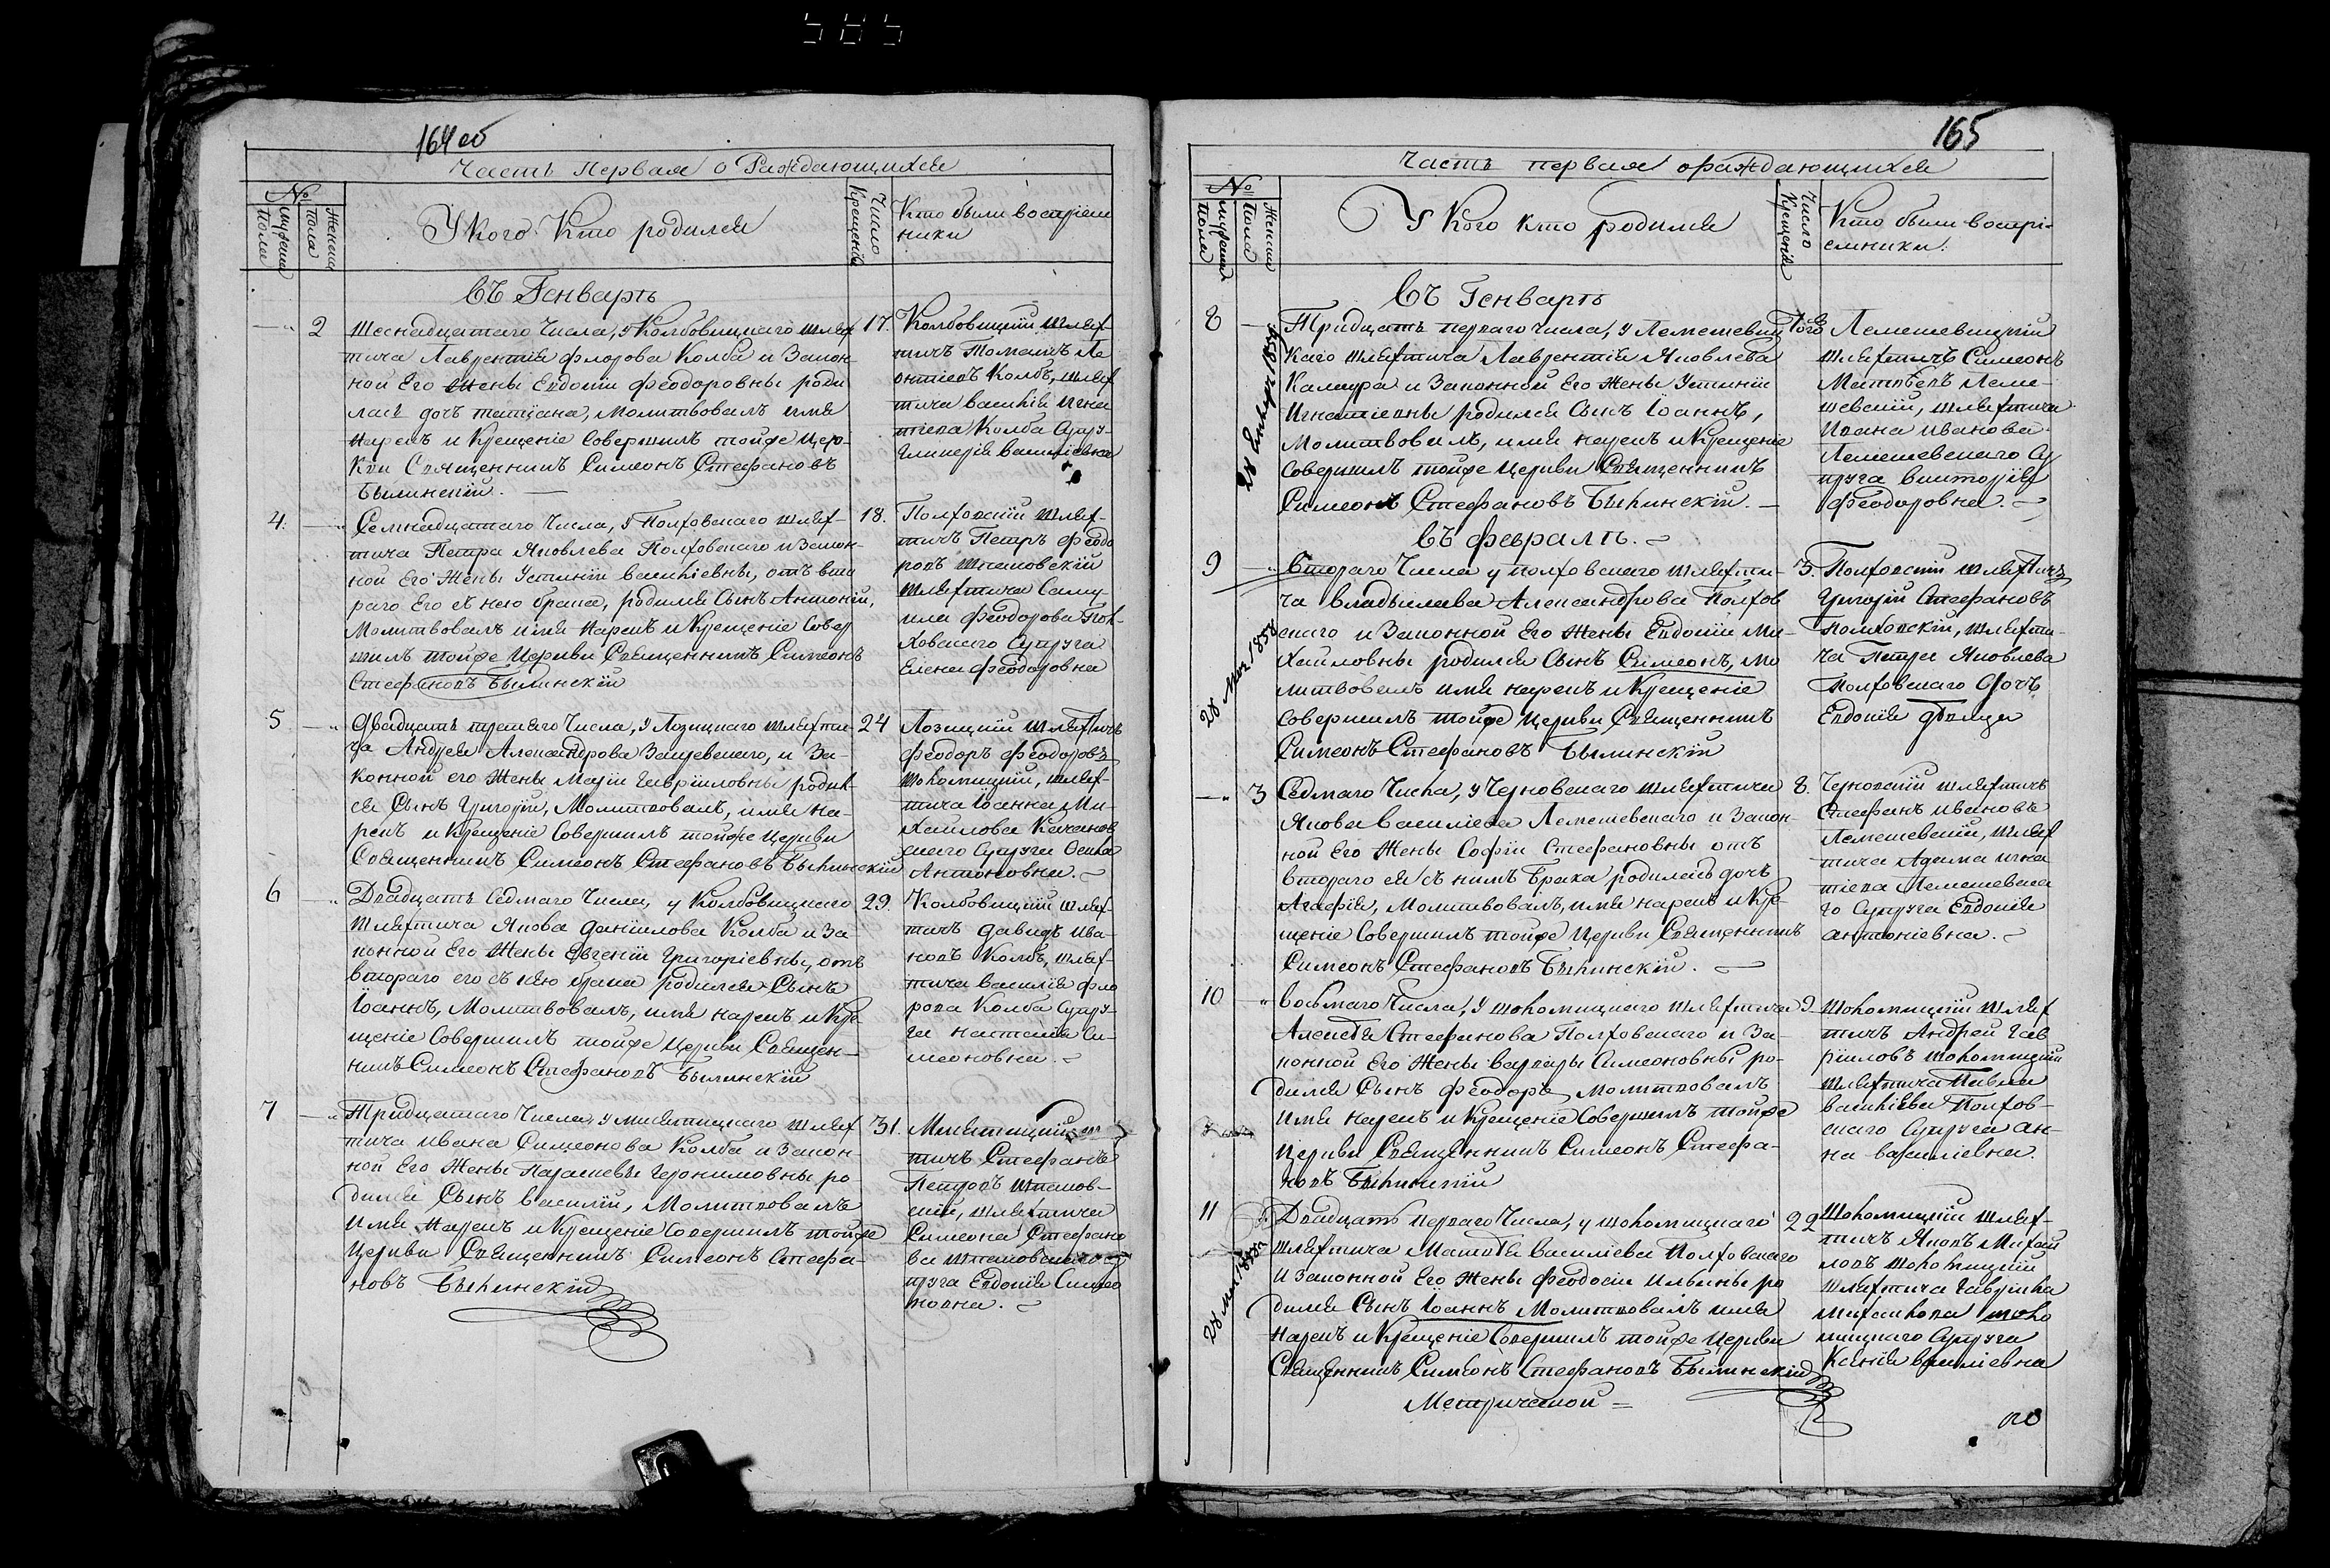 164 об
Часть Первая о Раждающихся
№
мужеска пола
Женска пола
У кого Кто родился
Число Крещенія
Кто были воспріем
ники
Въ Генварѣ
2
Шеснадцатаго Числа, у Колбовицкаго шлях
тича Лаврентія Флорова Колба и Закон-
ной Его Жены Евдокіи Феодоровны роди
лась дочь Татіана, Молитвовалъ имя
Нарекъ и Крещеніе Совершилъ тойже Цер-
кви Священникъ Симеонъ Стефановъ
Былинскій.
17.
Колбовицкій шлях-
тичъ Томашъ Ле
онтіевъ Колбъ, шлях
тича Василія Игна
тіева Колба Супру-
Гликерія Василіевна
4.
Семнадцатаго Числа, У Полховскаго шлях-
тича Петра Яковлева Полховскаго и Закон-
ной Его Жены Устиніи Василіевны, отъ вто
раго Его съ нею брака, родился Сынъ Антоній,
Молитвовалъ имя Нарекъ и Крещеніе Совер
шилъ тойже Церкви Священникъ Симеонъ
Стефановъ Былинскій
18.
Полховскій шлях-
тичъ Петръ Феодо
ровъ Шпаковскій
шляхтича Саму-
ила Феодорова Пол-
ховскаго Супруга
Елена Феодоровна
5
Двадцать третьяго Числа, У Лозицкаго шляхти-
ча Андрея Александрова Защевскаго, и За-
конной его Жены Маріи Гавріиловны родил-
ся Сынъ Григорій, Молитвовалъ, имя На-
рекъ и Крещеніе Совершилъ тойже Церкви
Священникъ Симеонъ Стефановъ Былинскій
24
Лозицкій шляхтичъ
Феодоръ Феодоровъ
Шоломицкій, шлях-
тича Іоанна Ми-
хайлова Качанов
скаго Супруга Осипа
Антоновна.
6
Двадцать Седмаго Числа, у Колбовицкаго
Шляхтича Якова Даніилова Колба и За-
конной Его Жены Евгеніи Григоріевны, отъ
втораго его съ нею брака родился Сынъ
Іоаннъ, Молитвовалъ, имя нарекъ и Кре
щеніе Совершилъ тойже Церкви Священ-
никъ Симеонъ Стефановъ Былинскій
29.
Колбовицкій шлях-
тичъ Давидъ Ива-
новъ Колбъ, шлях-
тича Василія Фло
рова Колба Супру-
га Наталія Си-
меоновна.
7
Тридцатаго Числа, у Мшятицкаго шлях
тича Ивана Симеонова Колба и Закон-
ной Его Жены Параскевы Геронимовны ро-
дился Сынъ Василій, Молитвовалъ
Имя Нарекъ и Крещеніе Совершилъ тойже
Церкви Священникъ Симеонъ Стефа-
новъ Былинскій
31.
Мшятицкій
тичъ Стефанъ
Петровъ Шпаков-
скій, шляхтича
Симеона Стефано
ва Шпаковскаго Су
пруга Евдокія Симео
новна.
165
Часть первая о раждающихся
№
мужеска пола
Женска пола
У Кого кто родился
Число Крещенія
Кто были воспрі-
емники.
Въ Генварѣ
8
Тридцать перваго числа, у Лемешевиц
каго шляхтича Лаврентія Яковлева
Камура и Законной Его Жены Устиніи
Игнатіевны родился Сынъ Іоаннъ,
Молитвовалъ, имя нарекъ и Крещеніе
Совершилъ тойже Церкви Священникъ
Симеонъ Стефановъ Былинскій.
Лемешевицкій
шляхтичъ Симеонъ
Матвѣевъ Леме-
шевскій, шляхтича
Ивана Иванова
Лемешевскаго Су
пруга Викторія
Феодоровна.
Въ Февралѣ.
9
Втораго Числа у Полховскаго шляхти-
ча Владыслава Александрова Полхов
скаго и Законной Его Жены Евдокіи Ми-
хайловны родился Сынъ Симеонъ, Мо
литвовалъ имя нарекъ и Крещеніе
Совершилъ тойже Церкви Священникъ
Симеонъ Стефановъ Былинскій
3.
Полховскій шляхтичъ
Григорій Стефановъ
Полховскій, шляхти-
ча Петра Яковлева
Полховскаго дочь
Евдокія дѣвица
3
Седмаго Числа, у Черновскаго шляхтича
Якова Василіева Лемешевскаго и Закон-
ной Его Жены Софіи Стефановны отъ
втораго ея съ нимъ брака родилась дочь
Агафія, Молитвовалъ, имя нарекъ и Кре-
щеніе Совершилъ тойже Церкви Священникъ
Симеонъ Стефановъ Былинскій.
8.
Черновскій шляхтичъ
Стефанъ Ивановъ
Лемешевскій, шлях
тича Адама Игна
тіева Лемешевска
го Супруга Евдокія
Антоніевна.
10
Восьмаго Числа, у Шоломицкаго шляхтича
Алексѣя Стефанова Полховскаго и За-
конной Его Жены Варвары Симеоновны ро-
дился Сынъ Феодоръ, Молитвовалъ
имя нарекъ и Крещеніе Совершилъ тойже
Церкви Священникъ Симеонъ Стефа-
новъ Былинскій
9
Шоломицкій шлях
тичъ Андрей Гав
ріиловъ Шоломицкій
шляхтича Павла
Василіева Полхов-
скаго Супруга Ан-
на Василіевна.
11
Двадцать перваго Числа, у Шоломицкаго
шляхтича Матвѣя Василіева Полховскаго
И Законной Его Жены Феодосіи Ильины ро
дился Сынъ Іоаннъ Молитвовалъ имя
Нарекъ и Крещеніе Совершилъ тойже Церкви
Священникъ Симеонъ Стефановъ Былинскій
22
Шоломицкій шлях-
тичъ Яковъ Михай
ловъ Шоломицкій
шляхтича Гавріила
Михайлова Шоло
мицкаго Супруга
Ксенія Василіевна
Метрической